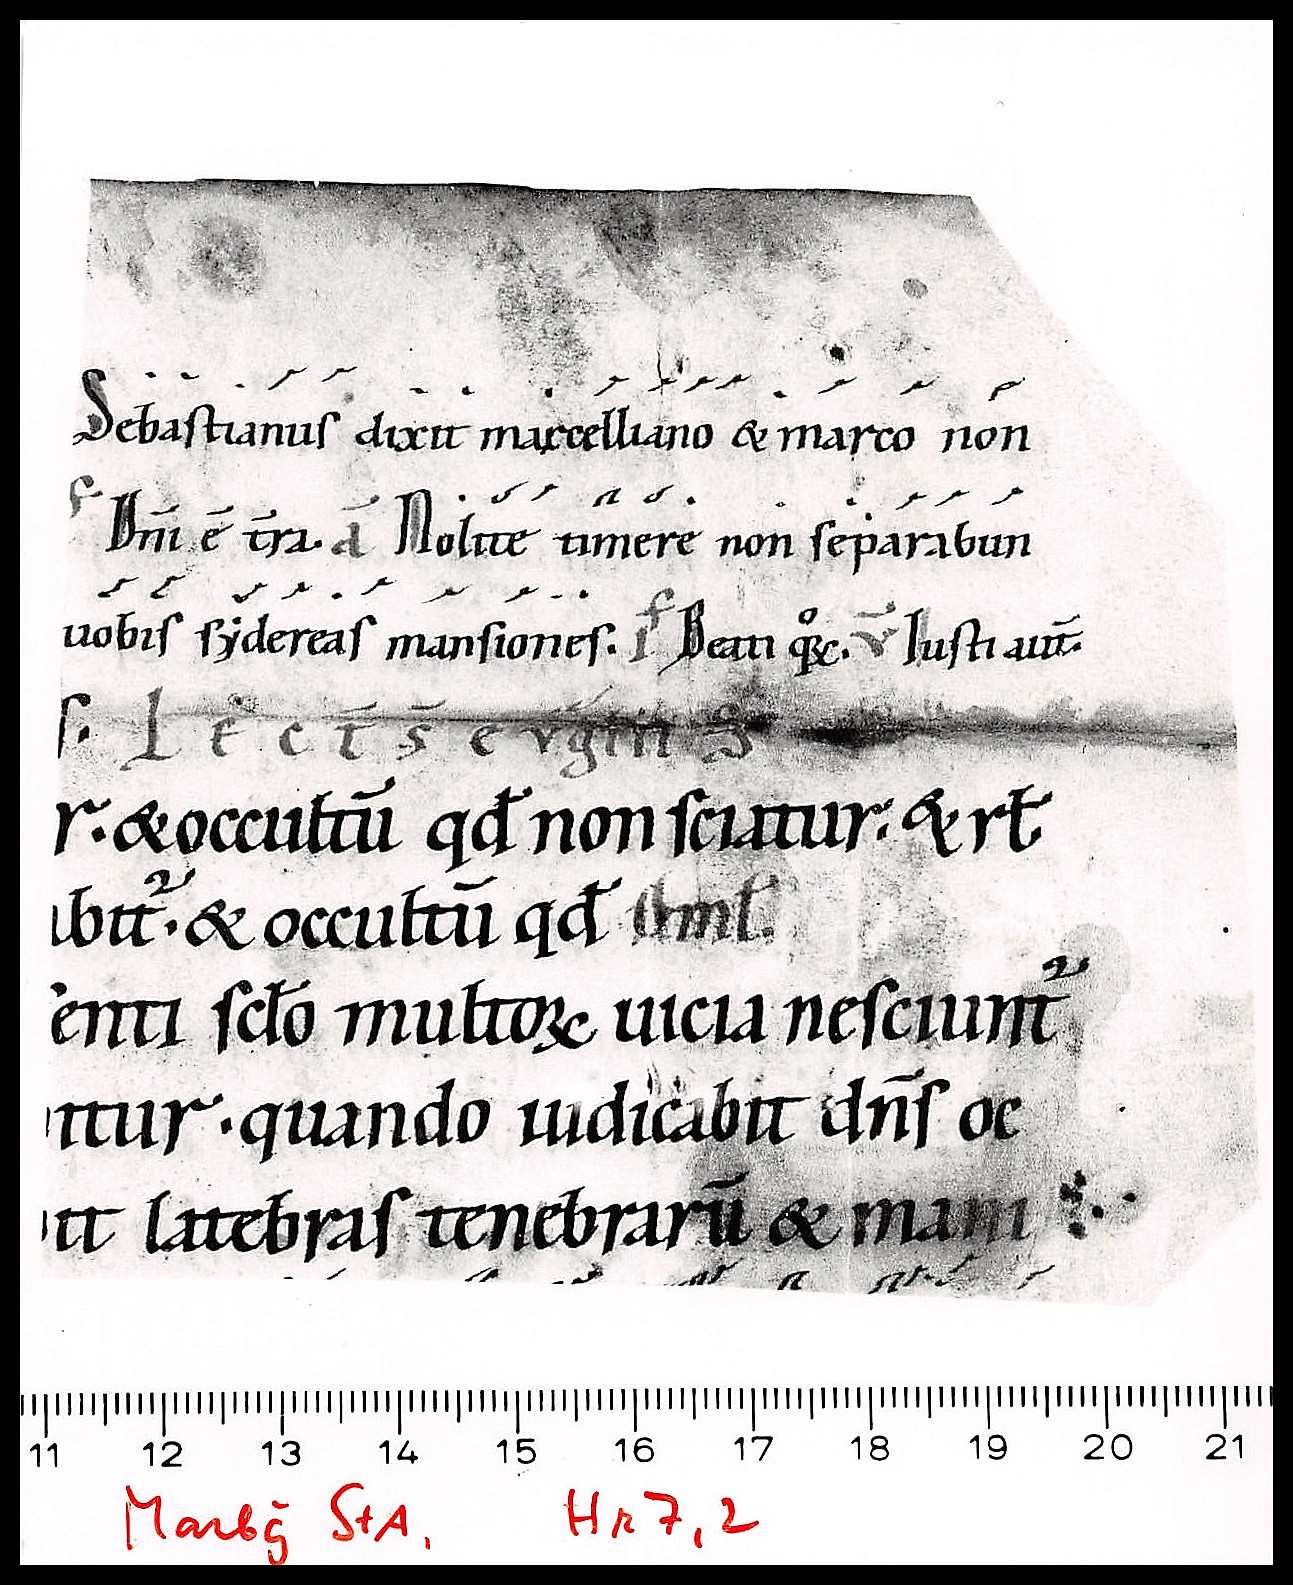 Sebastianus dixit marcelliano & marco non
Dñi ē t̄ra. a Nolite timere non separabun
uobis sydereas mansiones. Beati qͦꝝ. v Iusti aut̄.
s. Lect̄ s̄
r. & occultū qđ non sciatur. & rł
ibit᷑. & occultū qđ Simł.
enti sclo multoꝝ uicia nesciunt᷑
ntur. quando iudicabit dn̄s oc
it latebras tenebrarū & mani
11 12 13 14 15 16 17 18 19 20 21
Marbg StA. Hr 7,2